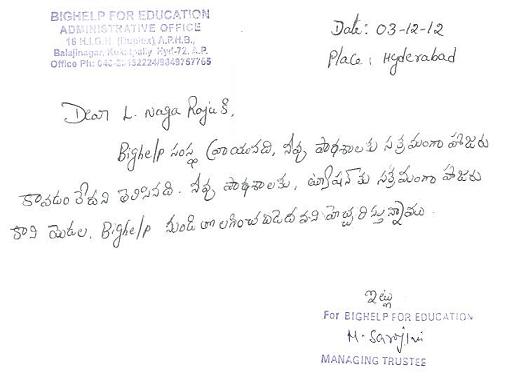 BIGHELP FOR EDUCATION
ADMINISTRATIVE OFFICE
16 H.I.G.H. (Duplex), A.P.H.B.,
Balajinagar, Kukatpally Hyd-72, A.P.
Date: 03-12-12
Place: Hyderabad
Dear L. Naga Raju K,
Bighelp సంస్థ వ్రాయునది, నీవు పాఠశాలకు సక్రమంగా హాజరు
కావడం లేదని తెలిసినది. నీవు పాఠశాలకు, ట్యూషన్ కు సక్రమంగా హాజరు
కాని యెడల, Bighelp నుండి తొలగించబడెదవని హెచ్చరిస్తున్నాము.
ఇట్లు
For BIGHELP FOR EDUCATION
M. Sarojini
MANAGING TRUSTEE